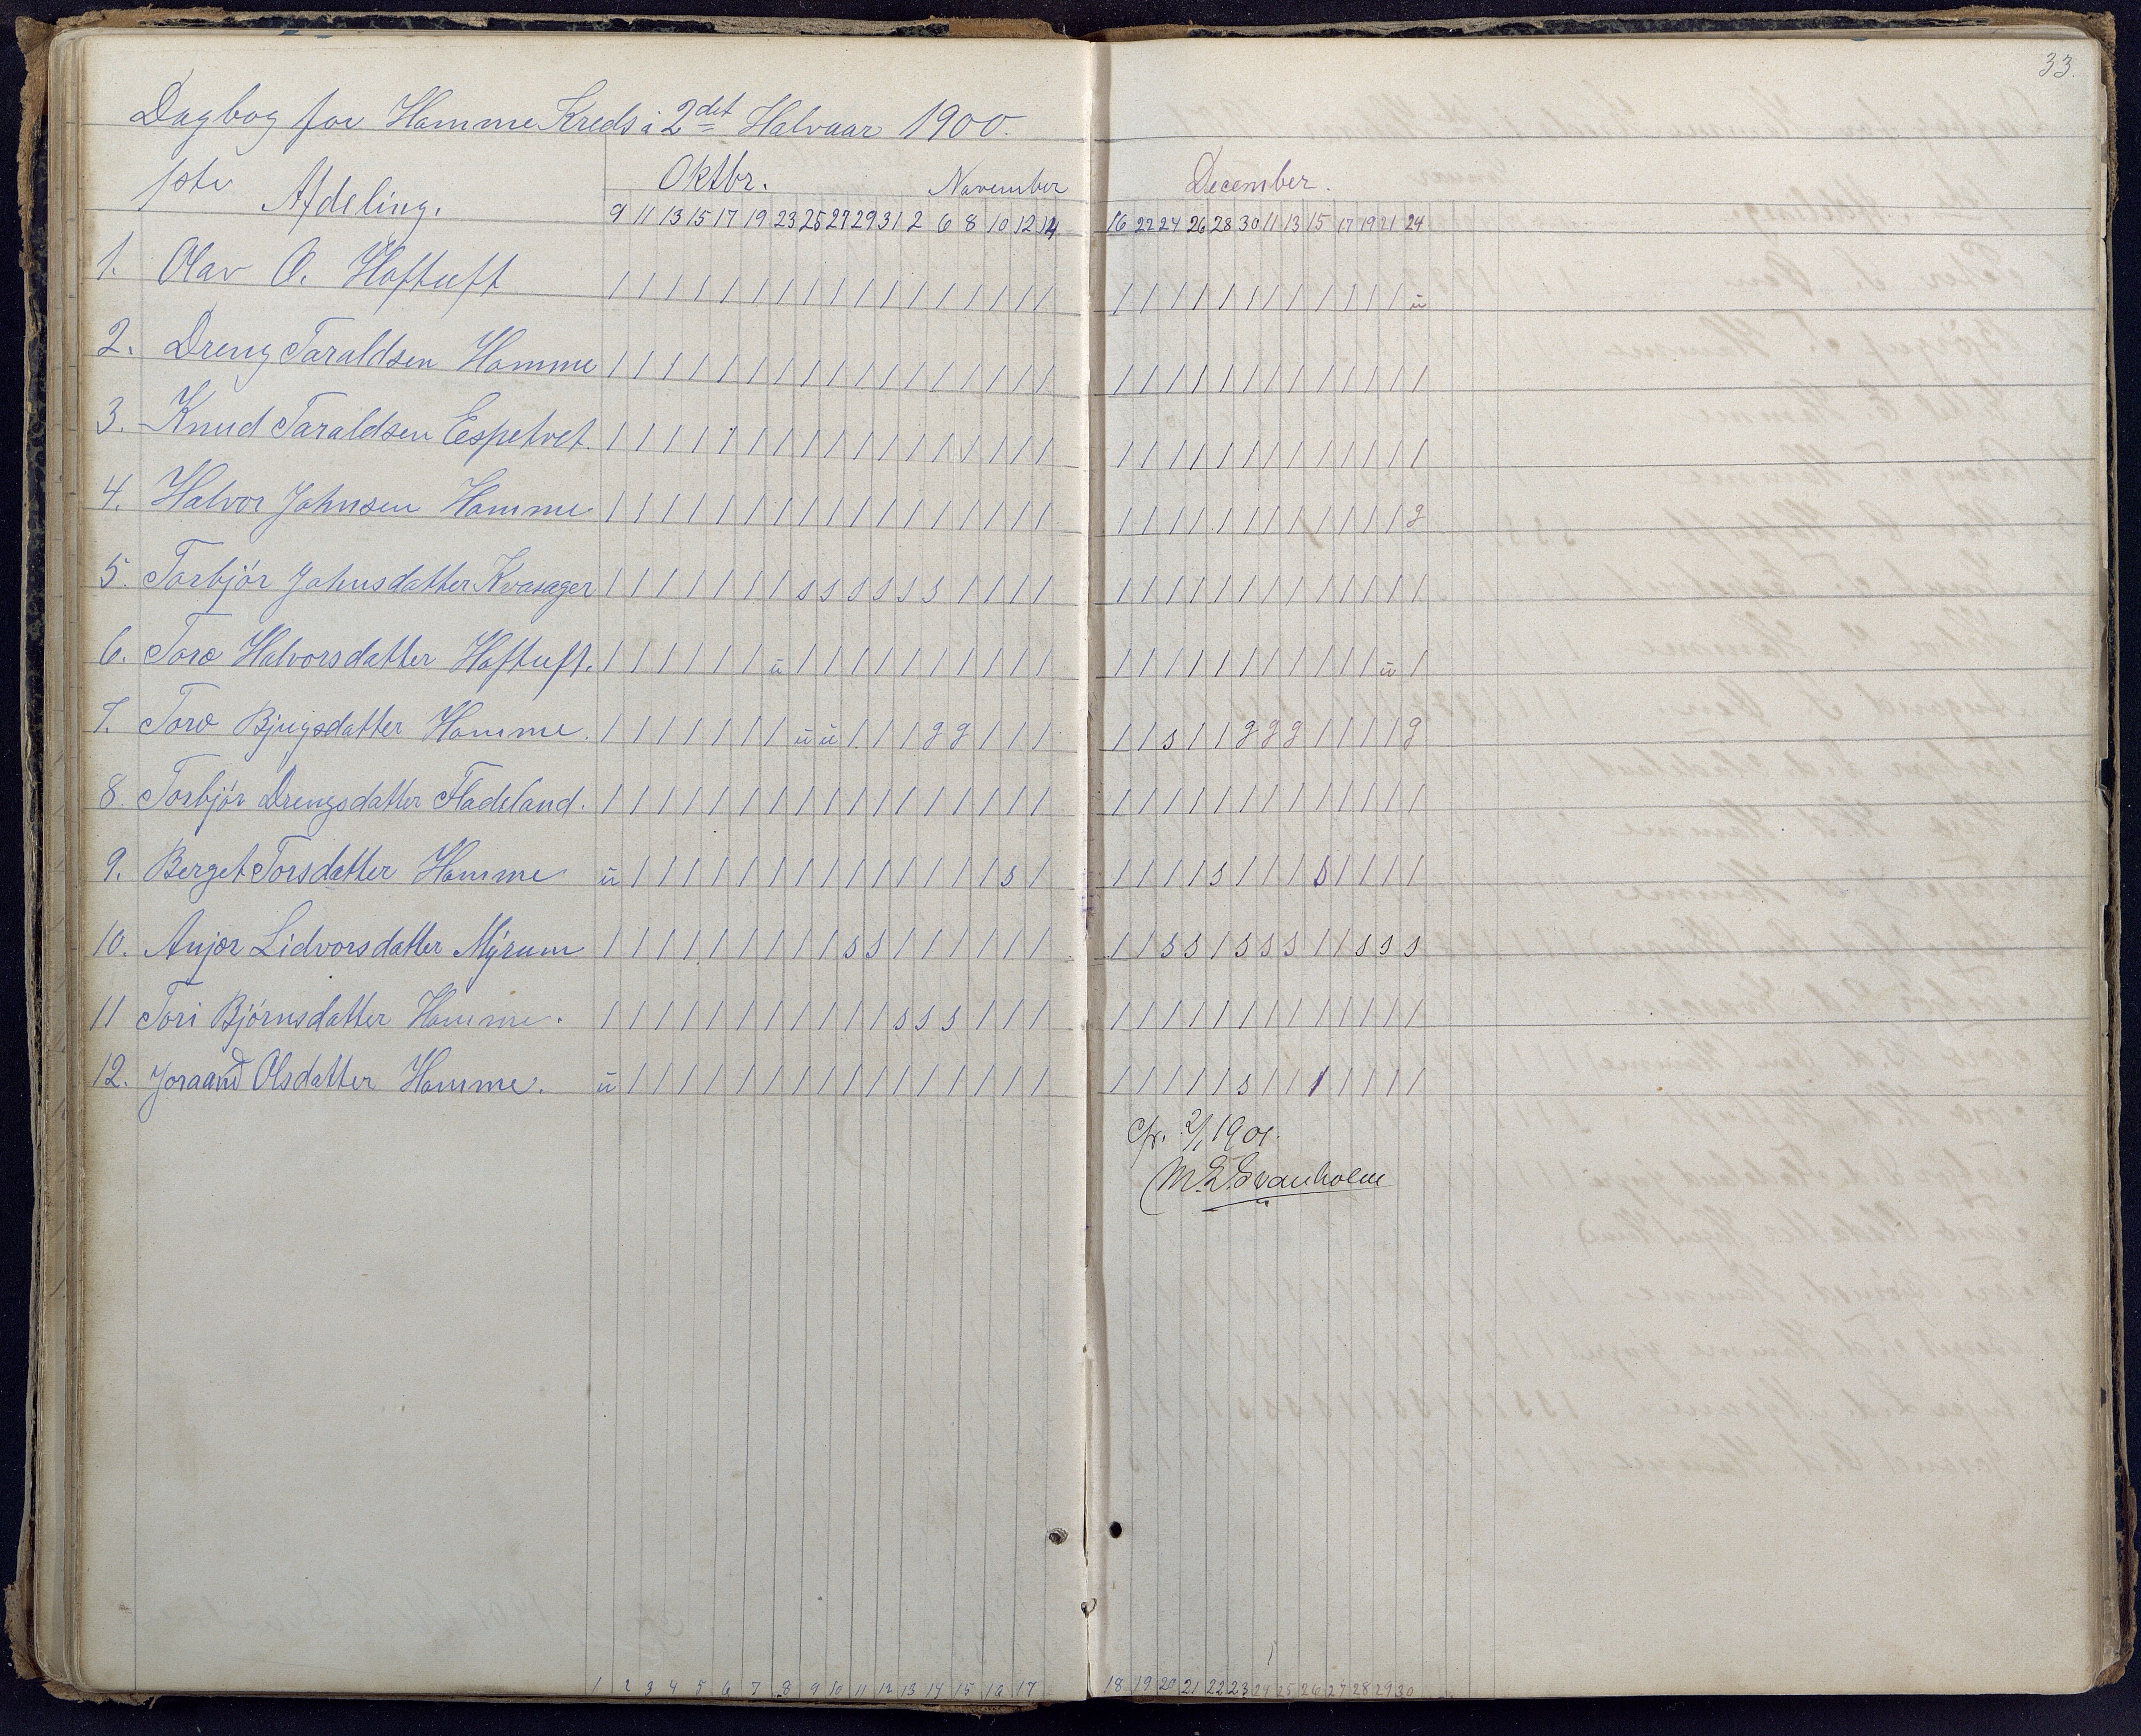 33.
Dagbog for Homme Kreds i 2det Halvaar 1900.
1ste Afdeling.
Oktbr. November
9 11 13 15 17 19 23 25 27 29 31 2 6 8 10 12 14
December.
16 22 24 26 28 30 11 13 15 17 19 21 24
1. Olav O. Hoftuft / / / / / / / / / / / / / / / / / / / / / / / / / / / / / ü
2. Dreng Taraldsen Homme / / / / / / / / / / / / / / / / / / / / / / / / / / / / / /
3. Knud Taraldsen Espetvet. / / / / / / / / / / / / / / / / / / / / / / / / / / / / / /
4. Halvor Johnsen Homme / / / / / / / / / / / / / / / / / / / / / / / / / / / / / g
5. Torbjör Johnsdatter Kvasager / / / / / / / s s s s s s / / / / / / / / / / / / / / / / /
6. Toro Halvorsdatter Hoftuft. / / / / / / ü / / / / / / / / / / / / / / / / / / / / / ü /
7. Toro Bjugsdatter Homme. / / / / / / / ü ü / / / g g / / / / / s / / g g g / / / / g
8. Torbjör Drengsdatter Fladeland. / / / / / / / / / / / / / / / / / / / / / / / / / / / / / /
9. Berget Torsdatter Homme ü / / / / / / / / / / / / / / s / / / / / s / / / s / / / /
10. Anjor Lidvorsdatter Myrum / / / / / / / / / s s / / / / / / / / s s / s s s / / s s s
11 Tori Björnsdatter Homme. / / / / / / / / / / / s s s / / / / / / / / / / / / / / / /
12. Joraand Olsdatter Homme. ü / / / / / / / / / / / / / / / / / / / / / s / / / / / / /
2/1 1901.
M. E. Svanholm
1 2 3 4 5 6 7 8 9 10 11 12 13 14 15 16 17
18 19 20 21 22 23 24 25 26 27 28 29 30